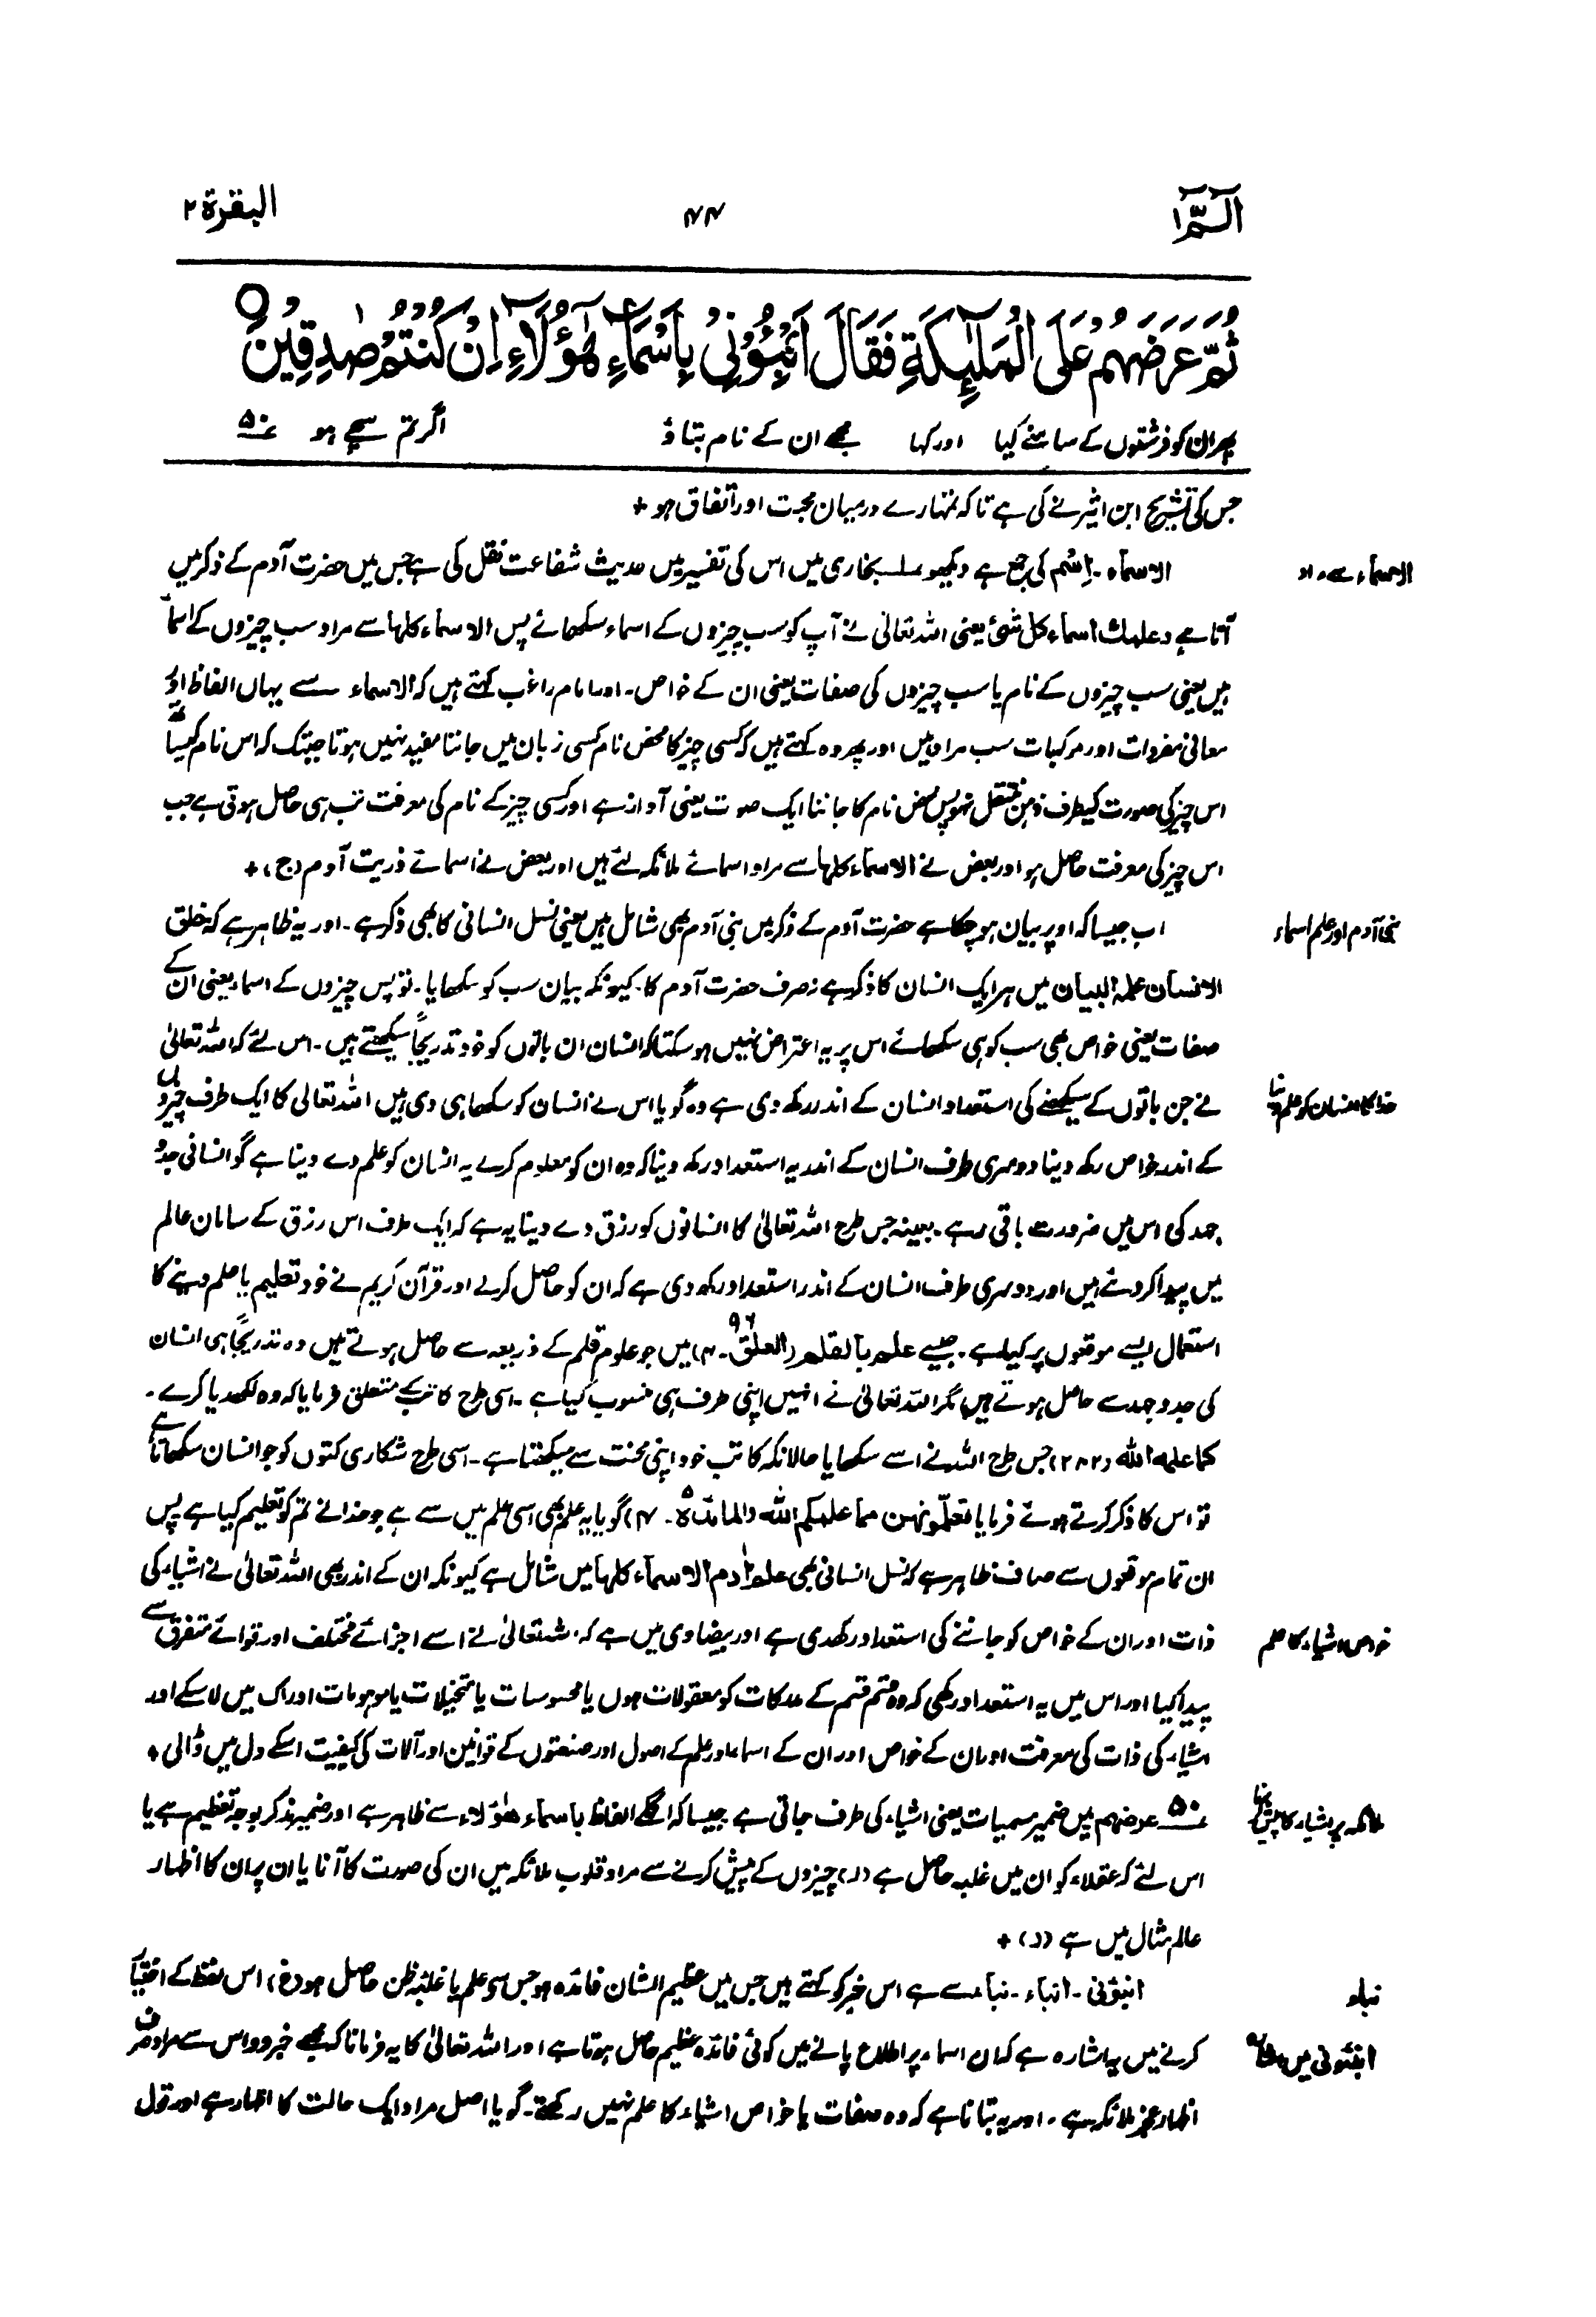 الٓمّٓ ۱
۴۴
البقرة ۲
ثُمَّ عَرَضَهُمْ عَلَى الْمَلٰٓئِكَةِ فَقَالَ اَنْۢبِئُوْنِيْ بِاَسْمَآءِ هٰٓؤُلَآءِ اِنْ كُنْتُمْ صٰدِقِيْنَ ○
پھر ان کو فرشتوں کے سامنے کیا اور کہا مجھے ان کے نام بتاؤ اگر تم سچے ہو ۵۰
جس کی تشریح ابن اثیر نے کی ہے تاکہ تمہارے درمیان محبت اور اتفاق ہو +
الاسماء سے مراد
الاسمآء ۔ اِسْم کی جمع ہے دیکھو بخاری میں اس کی تفسیر میں حدیث شفاعت نقل کی ہے جس میں حضرت آدم کے ذکر میں
آتا ہے وعلمك اسماء كل شئ یعنی اللہ تعالیٰ نے آپ کو سب چیزوں کے اسماء سکھائے پس الاسماء كلها سے مراد سب چیزوں کے اسما
ہیں یعنی سب چیزوں کے نام یا سب چیزوں کی صفات یعنی ان کے خواص ۔ اور امام راغب کہتے ہیں کہ الاسماء سے یہاں الفاظ اور
معانی مفردات اور مرکبات سب مراد ہیں اور پھر وہ کہتے ہیں کہ کسی چیز کا محض نام کسی زبان میں جاننا مفید نہیں ہوتا جبتک کہ اس نام کیساتھ
اس چیز کی صورت کیطرف ذہن منتقل نہو پس محض نام کا جاننا ایک صوت یعنی آواز ہے اور کسی چیز کے نام کی معرفت تب ہی حاصل ہوتی ہے جب
اس چیز کی معرفت حاصل ہو اور بعض نے الاسماء كلها سے مراد اسمائے ملائکہ لئے ہیں اور بعض نے اسمائے ذریت آدم (ج) +
بنی آدم اور علم اسماء
اب جیسا کہ اوپر بیان ہو چکا ہے حضرت آدم کے ذکر میں بنی آدم بھی شامل ہیں یعنی نسل انسانی کا بھی ذکر ہے ۔ اور یہ ظاہر ہے کہ خلق
الانسان علمه البيان میں ہر ایک انسان کا ذکر ہے نہ صرف حضرت آدم کا ۔ کیونکہ بیان سب کو سکھایا ۔ تو پس چیزوں کے اسماء یعنی ان کے
صفات یعنی خواص بھی سب کو ہی سکھائے اس پر یہ اعتراض نہیں ہو سکتا کہ انسان ان باتوں کو خود تدریجاً سیکھتے ہیں ۔ اس لئے کہ اللہ تعالیٰ
خدا کا انسان کو علم دینا
نے جن باتوں کے سیکھنے کی استعداد انسان کے اندر رکھ دی ہے وہ گویا اس نے انسان کو سکھا ہی دی ہیں اللہ تعالیٰ کا ایک طرف چیزوں
کے اندر خواص رکھ دینا دوسری طرف انسان کے اندر یہ استعداد رکھ دینا کہ وہ ان کو معلوم کرلے یہ انسان کو علم دے دینا ہے گو انسانی جدو
جہد کی اس میں ضرورت باقی رہے ۔ بعینہ جس طرح اللہ تعالیٰ کا انسانوں کو رزق دے دینا یہ ہے کہ ایک طرف اس رزق کے سامان عالم
میں پیدا کر دئے ہیں اور دوسری طرف انسان کے اندر استعداد رکھ دی ہے کہ ان کو حاصل کرلے اور قرآن کریم نے خود تعلیم یا علم دینے کا
استعمال ایسے موقعوں پر کیا ہے ۔ جیسے علم بالقلم (العلق ۹۶ ۔ ۴) میں جو علوم قلم کے ذریعہ سے حاصل ہوتے ہیں وہ تدریجاً ہی انسان
کی جدوجہد سے حاصل ہوتے ہیں مگر اللہ تعالیٰ نے انہیں اپنی طرف ہی منسوب کیا ہے ۔ اسی طرح کاتب کے متعلق فرمایا کہ وہ لکھدیا کرے ۔
كما علمه الله (۲۸۲) جس طرح اللہ نے اسے سکھایا حالانکہ کاتب خود اپنی محنت سے سیکھتا ہے ۔ اسی طرح شکاری کتوں کو جو انسان سکھاتا ہے
تو اس کا ذکر کرتے ہوئے فرمایا تعلمونهن مما علمكم الله (المائدة ۵ ۔ ۴) گویا یہ علم بھی اسی علم میں سے ہے جو خدا نے تم کو تعلیم کیا ہے پس
ان تمام موقعوں سے صاف ظاہر ہے کہ نسل انسانی بھی علم اٰدم الاسماء كلها میں شامل ہے کیونکہ ان کے اندر بھی اللہ تعالیٰ نے اشیاء کی
خواص اشیاء کا علم
ذات اور ان کے خواص کو جاننے کی استعداد رکھدی ہے اور بیضاوی میں ہے کہ اللہ تعالیٰ نے اسے اجزائے مختلف اور قوائے متفرق سے
پیدا کیا اور اس میں یہ استعداد رکھی کہ وہ قسم قسم کے مدرکات کو معقولات ہوں یا محسوسات یا متخیلات یا موہومات ادراک میں لا سکے اور
اشیاء کی ذات کی معرفت اور ان کے خواص اور ان کے اسماء اور علم کے اصول اور صنعتوں کے قوانین اور آلات کی کیفیت اسکے دل میں ڈالی +
ملائکہ پر اشیاء کا پیش کرنا
۵۰ عرضهم میں ضمیر مسمیات یعنی اشیاء کی طرف جاتی ہے جیسا کہ اگلے الفاظ باسماء هٰؤلاء سے ظاہر ہے اور ضمیر مذکر بوجہ تعظیم ہے یا
اس لئے کہ عقلاء کو ان میں غلبہ حاصل ہے (ر) چیزوں کے پیش کرنے سے مراد قلوب ملائکہ میں ان کی صورت کا آنا یا ان پر ان کا اظہار
عالم مثال میں ہے (ر) +
نبأ
انبئونی ۔ انباء ۔ نبأ سے ہے اس خبر کو کہتے ہیں جس میں عظیم الشان فائدہ ہو جس سے علم یا غلبۂ ظن حاصل ہو (غ) اس لفظ کے اختیار
انبئونی میں اشارہ
کرنے میں یہ اشارہ ہے کہ ان اسماء پر اطلاع پانے میں کوئی فائدہ عظیم حاصل ہوتا ہے اور اللہ تعالیٰ کا یہ فرمانا کہ مجھے خبر دو اس سے مراد صرف
اظہار عجز ملائکہ ہے ۔ اور یہ بتانا ہے کہ وہ صفات یا خواص اشیاء کا علم نہیں رکھتے ۔ گویا اصل مراد ایک حالت کا اظہار ہے اور قول